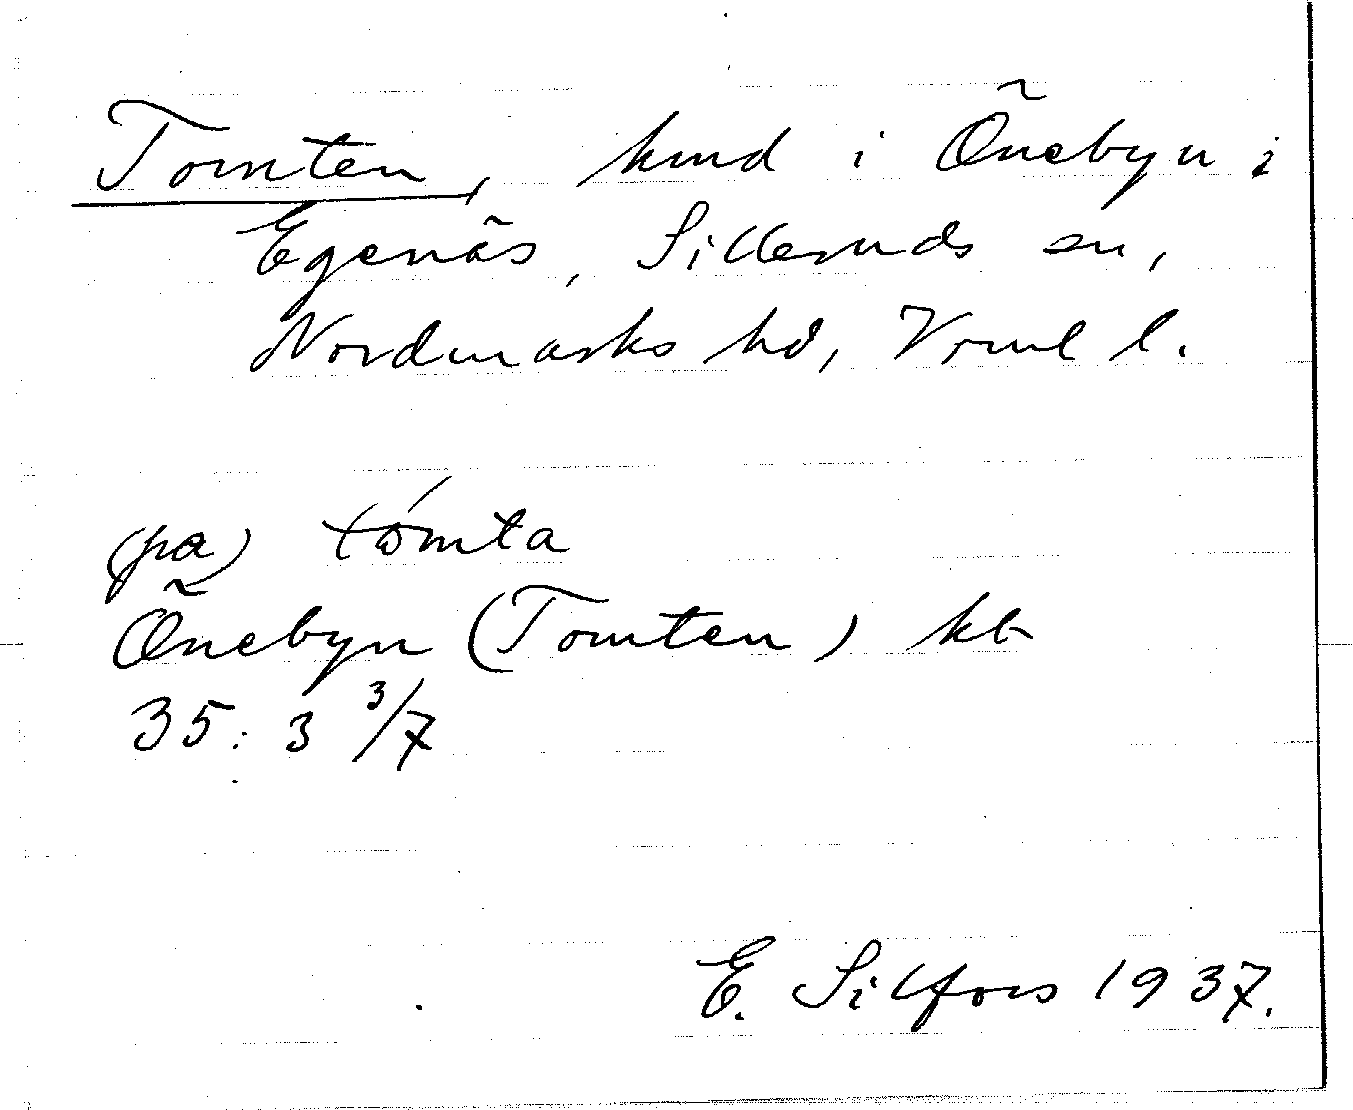 Tomten, hmd i Önebyn i
Egenäs, Silleruds sn,
Nordmarks hd, Vrml l.
(pa) tómta
Önebyn (Tomten) kb
35: 3 3/7
E. Silfors 1937.